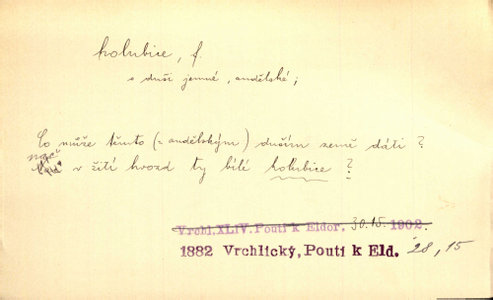 holubice, f.
o duši jemné, andělské;
Co může těmto (= andělským) duším země dáti?
nač v žití hvozd ty bílé holubice?
Vrchl. XLIV. Pouti k Eldor. 30.15. 1902.
1882 Vrchlický, Pouti k Eld. 28, 15